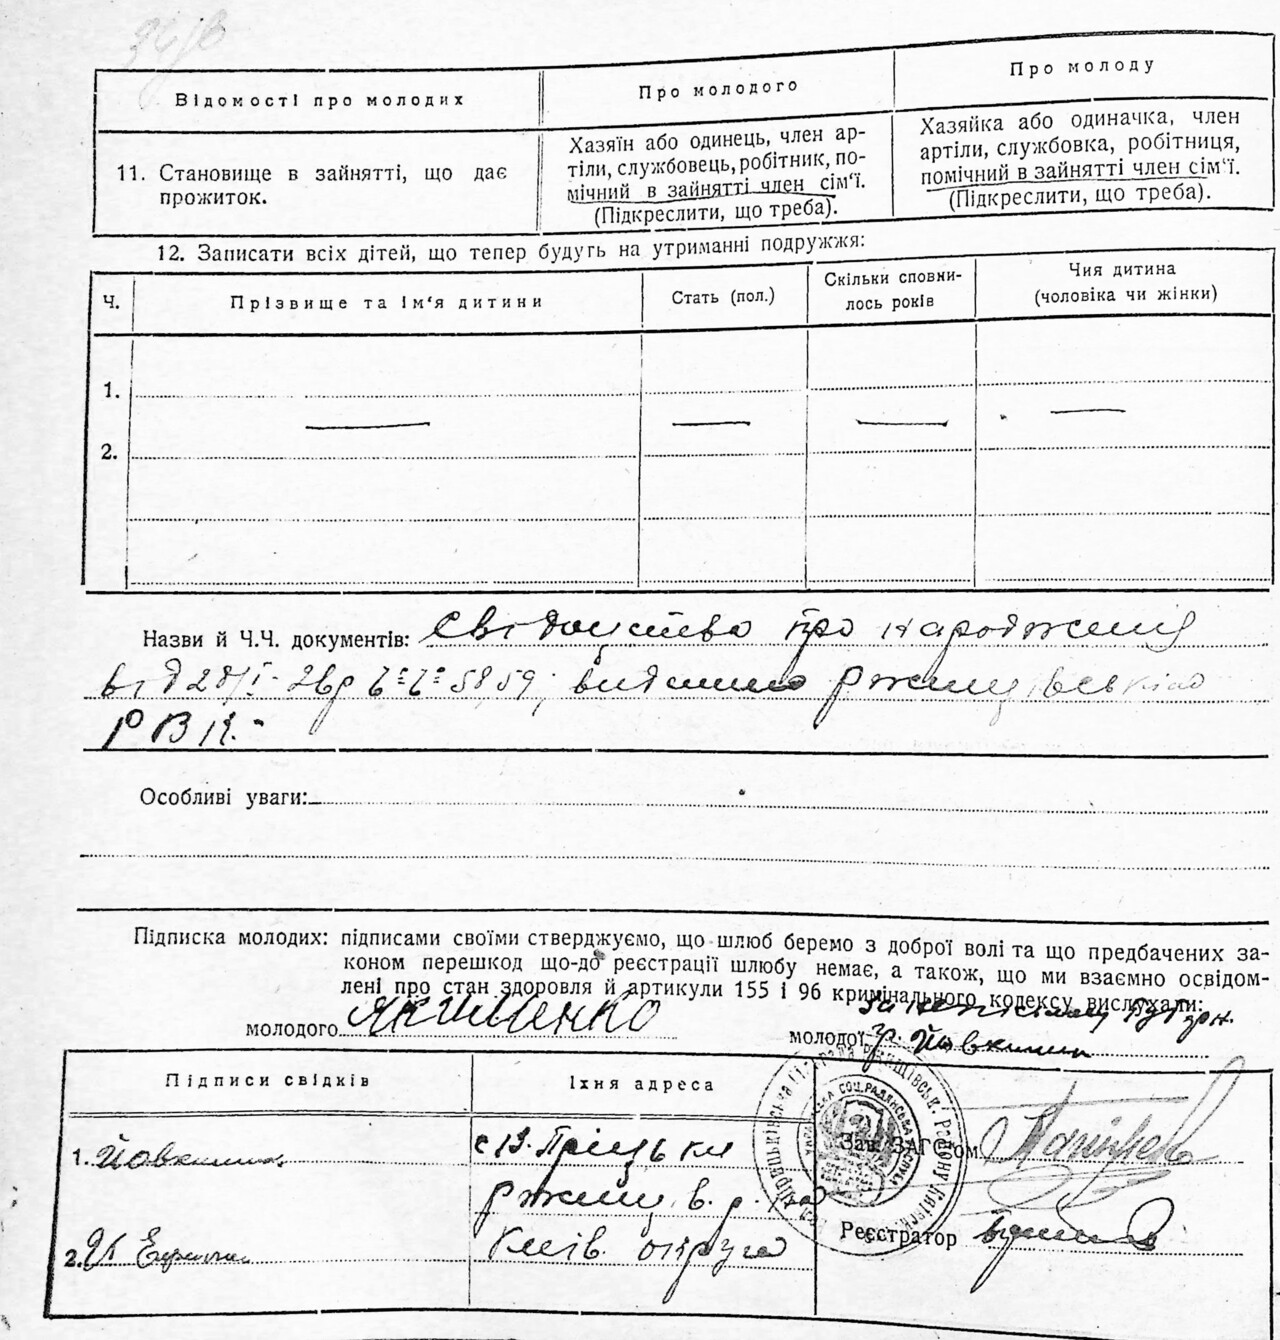 Відомості про молодих
Про молодого
Про молоду
11. Становище в зайнятті, що дає
прожиток.
Хазяїн або одинець, член ар-
тіли, службовець, робітник, по-
мічний в зайнятті член сім'ї.
(Підкреслити, що треба).
Хазяйка або одиначка, член
артіли, службовка, робітниця,
помічний в зайнятті член сім'ї.
(Підкреслити, що треба).
12. Записати всіх дітей, що тепер будуть на утриманні подружжя:
Ч.
Прізвище та ім'я дитини
Стать (пол.)
Скільки сповни-
лось років
Чия дитина
(чоловіка чи жінки)
1.
2.
Назви й Ч.Ч. документів: Свідоцтво про народження
від 28/I- 58,59, видано
РВК.-
Особливі уваги:
Підписка молодих: підписами своїми стверджуємо, що шлюб беремо з доброї волі та що предбачених за-
коном перешкод що-до реєстрації шлюбу немає, а також, що ми взаємно освідом-
лені про стан здоровля й артикули 155 і 96 кримінального кодексу вислухали:
молодого Якименко
молодої
Підписи свідків
Їхня адреса
1.
Зав. ЗАГС'ом
2.
Київ. округа
Реєстратор